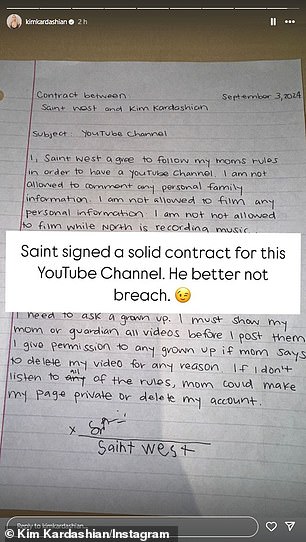 kimkardashian 2 h
Contract between:
September 3, 2024
Saint West and Kim Kardashian
Subject: YouTube Channel
I, Saint West agree to follow my moms rules
in order to have a YouTube Channel. I am not
allowed to comment any personal family
information. I am not allowed to film any
personal information. I am not not allowed
to film while North is recording music.
Saint signed a solid contract for this
YouTube Channel. He better not
breach. 😉
I need to ask a grown up. I must show my
mom or guardian all videos before I post them
I give permission to any grown up if mom says
to delete my video for any reason. If I don't
listen to all of the rules, mom could make
my page private or delete my account.
x
Saint West
Reply to kimkardashian
© Kim Kardashian/Instagram